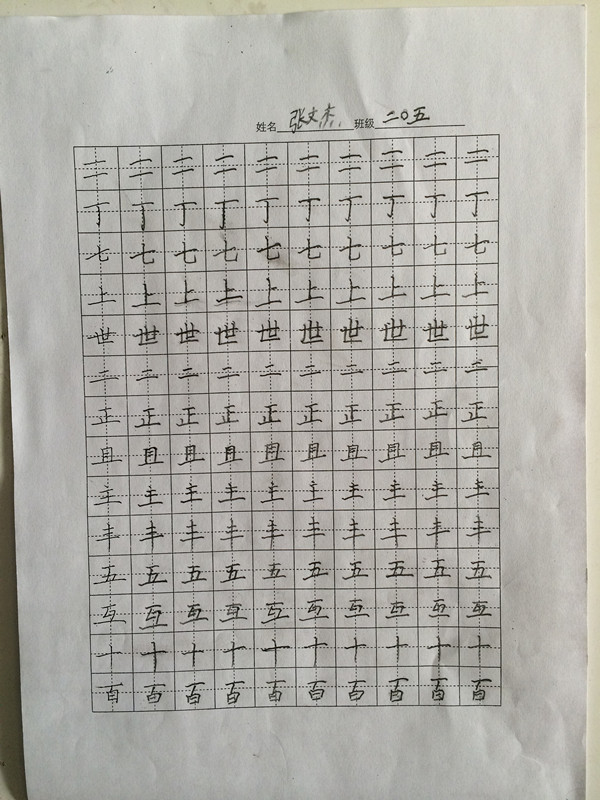 姓名 张文杰 班级 二〇五
三 三 三 三 三 三 三 三 三 三
丁 丁 丁 丁 丁 丁 丁 丁 丁 丁
七 七 七 七 七 七 七 七 七 七
上 上 上 上 上 上 上 上 上 上
世 世 世 世 世 世 世 世 世 世
二 二 二 二 二 二 二 二 二 二
正 正 正 正 正 正 正 正 正 正
且 且 且 且 且 且 且 且 且 且
主 主 主 主 主 主 主 主 主 主
丰 丰 丰 丰 丰 丰 丰 丰 丰 丰
五 五 五 五 五 五 五 五 五 五
互 互 互 互 互 互 互 互 互 互
十 十 十 十 十 十 十 十 十 十
百 百 百 百 百 百 百 百 百 百